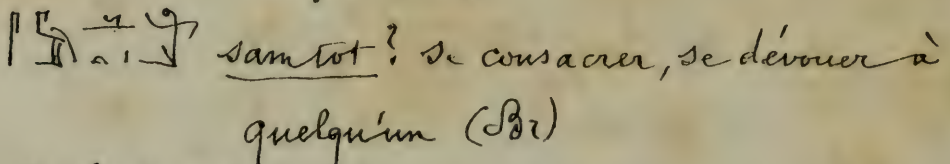 samtot? se consacrer, se dévouer à
quelqu'un (Br)